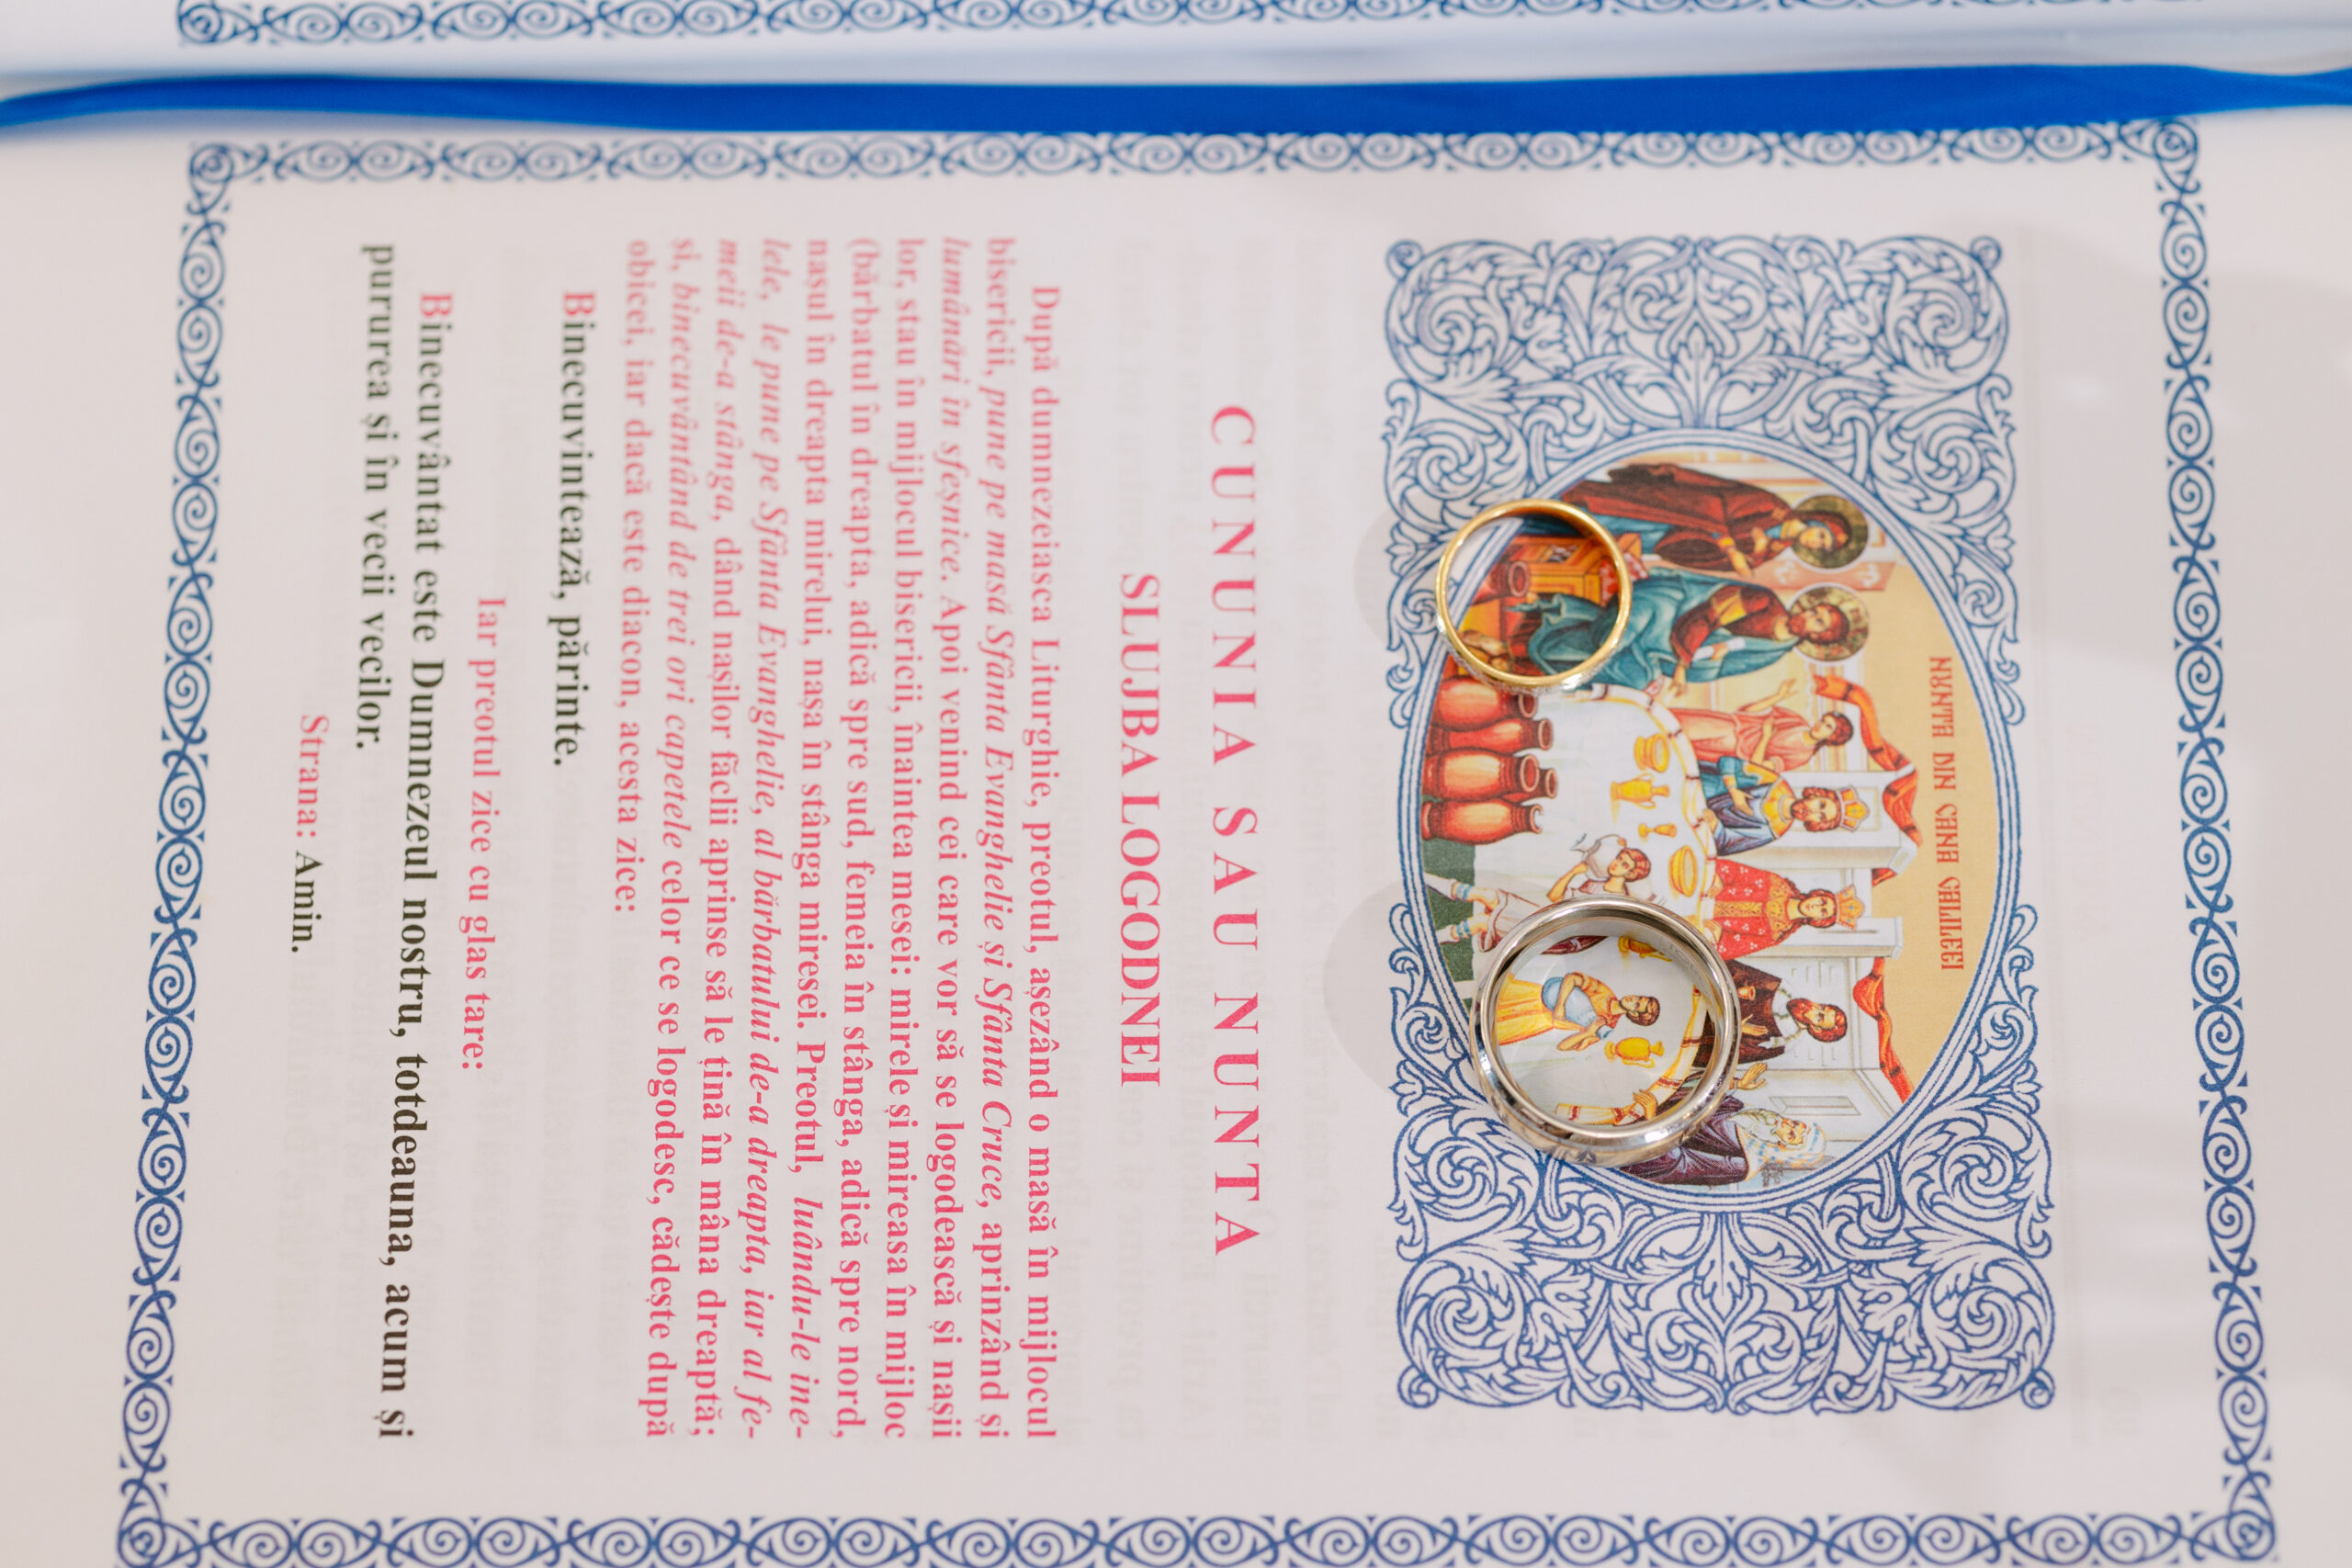 NUNTA DIN CANA GALILEEI
CUNUNIA SAU NUNTA
SLUJBA LOGODNEI
După dumnezeiasca Liturghie, preotul, așezând o masă în mijlocul
bisericii, pune pe masă Sfânta Evanghelie și Sfânta Cruce, aprinzând și
lumânări în sfeșnice. Apoi venind cei care vor să se logodească și nașii
lor, stau în mijlocul bisericii, înaintea mesei: mirele și mireasa în mijloc
(bărbatul în dreapta, adică spre sud, femeia în stânga, adică spre nord,
nașul în dreapta mirelui, nașa în stânga miresei. Preotul, luându-le ine-
lele, le pune pe Sfânta Evanghelie, al bărbatului de-a dreapta, iar al fe-
meii de-a stânga, dând nașilor făclii aprinse să le țină în mâna dreaptă;
și, binecuvântând de trei ori capetele celor ce se logodesc, cădește după
obicei, iar dacă este diacon, acesta zice:
Binecuvintează, părinte.
Iar preotul zice cu glas tare:
Binecuvântat este Dumnezeul nostru, totdeauna, acum și
pururea și în vecii vecilor.
Strana: Amin.